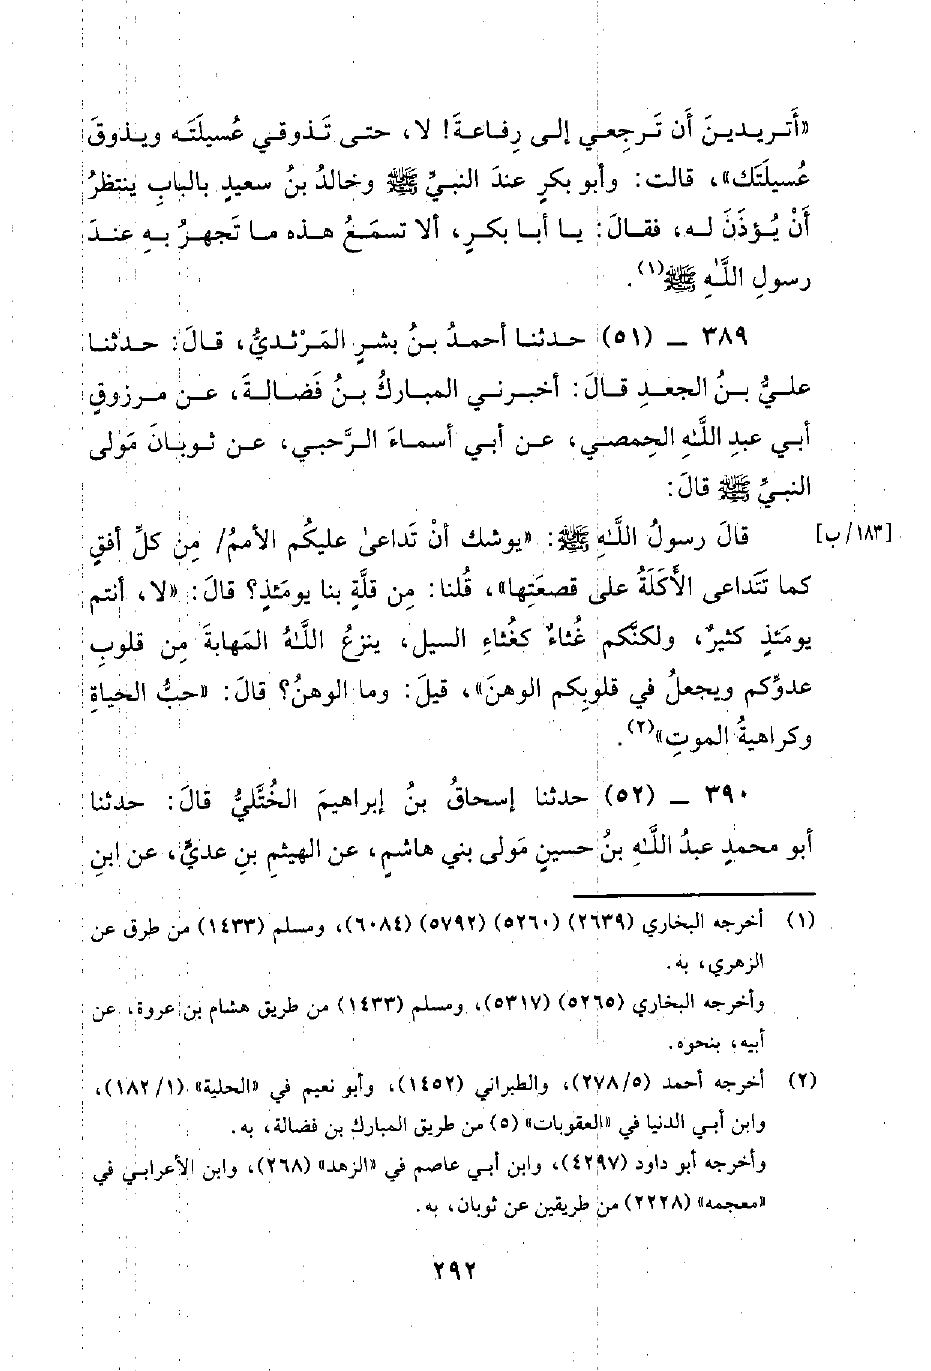 «أَتريدينَ أن تَرجعي إلى رِفاعةَ! لا، حتى تَذوقي عُسيلَتَه ويذوقَ
عُسيلَتَك»، قالت: وأبو بكرٍ عندَ النبيِّ ﷺ وخالدُ بنُ سعيدٍ بالبابِ ينتظرُ
أَنْ يُؤذَنَ له، فقالَ: يا أبا بكرٍ، ألا تسمَعُ هذه ما تَجهرُ بهِ عندَ
رسولِ اللَّهِ ﷺ(١).
٣٨٩ ــ (٥١) حدثنا أحمدُ بنُ بشرٍ المَرْثديُّ، قالَ: حدثنا
عليُّ بنُ الجعدِ قالَ: أخبرني المباركُ بنُ فَضالةَ، عن مرزوقٍ
أبي عبدِ اللَّهِ الحِمصي، عن أبي أسماءَ الرَّحبي، عن ثوبانَ مَولى
النبيِّ ﷺ قالَ:
قالَ رسولُ اللَّهِ ﷺ: «يوشك أنْ تَداعىٰ عليكُم الأممُ/ مِن كلِّ أفقٍ [١٨٣/ب]
كما تَتَداعى الأَكَلَةُ على قصعَتِها»، قُلنا: مِن قلَّةٍ بنا يومَئذٍ؟ قالَ: «لا، أنتم
يومَئذٍ كثيرٌ، ولكنَّكم غُثاءٌ كغُثاءِ السيل، ينزعُ اللَّهُ المَهابةَ مِن قلوبِ
عدوِّكم ويجعلُ في قلوبِكم الوهنَ»، قيلَ: وما الوهنُ؟ قالَ: «حبُّ الحياةِ
وكراهيةُ الموتِ»(٢).
٣٩٠ ــ (٥٢) حدثنا إسحاقُ بنُ إبراهيمَ الخُتَّليُّ قالَ: حدثنا
أبو محمدٍ عبدُ اللَّهِ بنُ حسينٍ مَولى بني هاشمٍ، عن الهيثمِ بنِ عديٍّ، عن ابنِ
(١) أخرجه البخاري (٢٦٣٩) (٥٢٦٠) (٥٧٩٢) (٦٠٨٤)، ومسلم (١٤٣٣) من طرق عن
الزهري، به.
وأخرجه البخاري (٥٢٦٥) (٥٣١٧)، ومسلم (١٤٣٣) من طريق هشام بن عروة، عن
أبيه، بنحوه.
(٢) أخرجه أحمد (٢٧٨/٥)، والطبراني (١٤٥٢)، وأبو نعيم في «الحلية» (١٨٢/١)،
وابن أبي الدنيا في «العقوبات» (٥) من طريق المبارك بن فضالة، به.
وأخرجه أبو داود (٤٢٩٧)، وابن أبي عاصم في «الزهد» (٢٦٨)، وابن الأعرابي في
«معجمه» (٢٢٢٨) من طريقين عن ثوبان، به.
٢٩٢